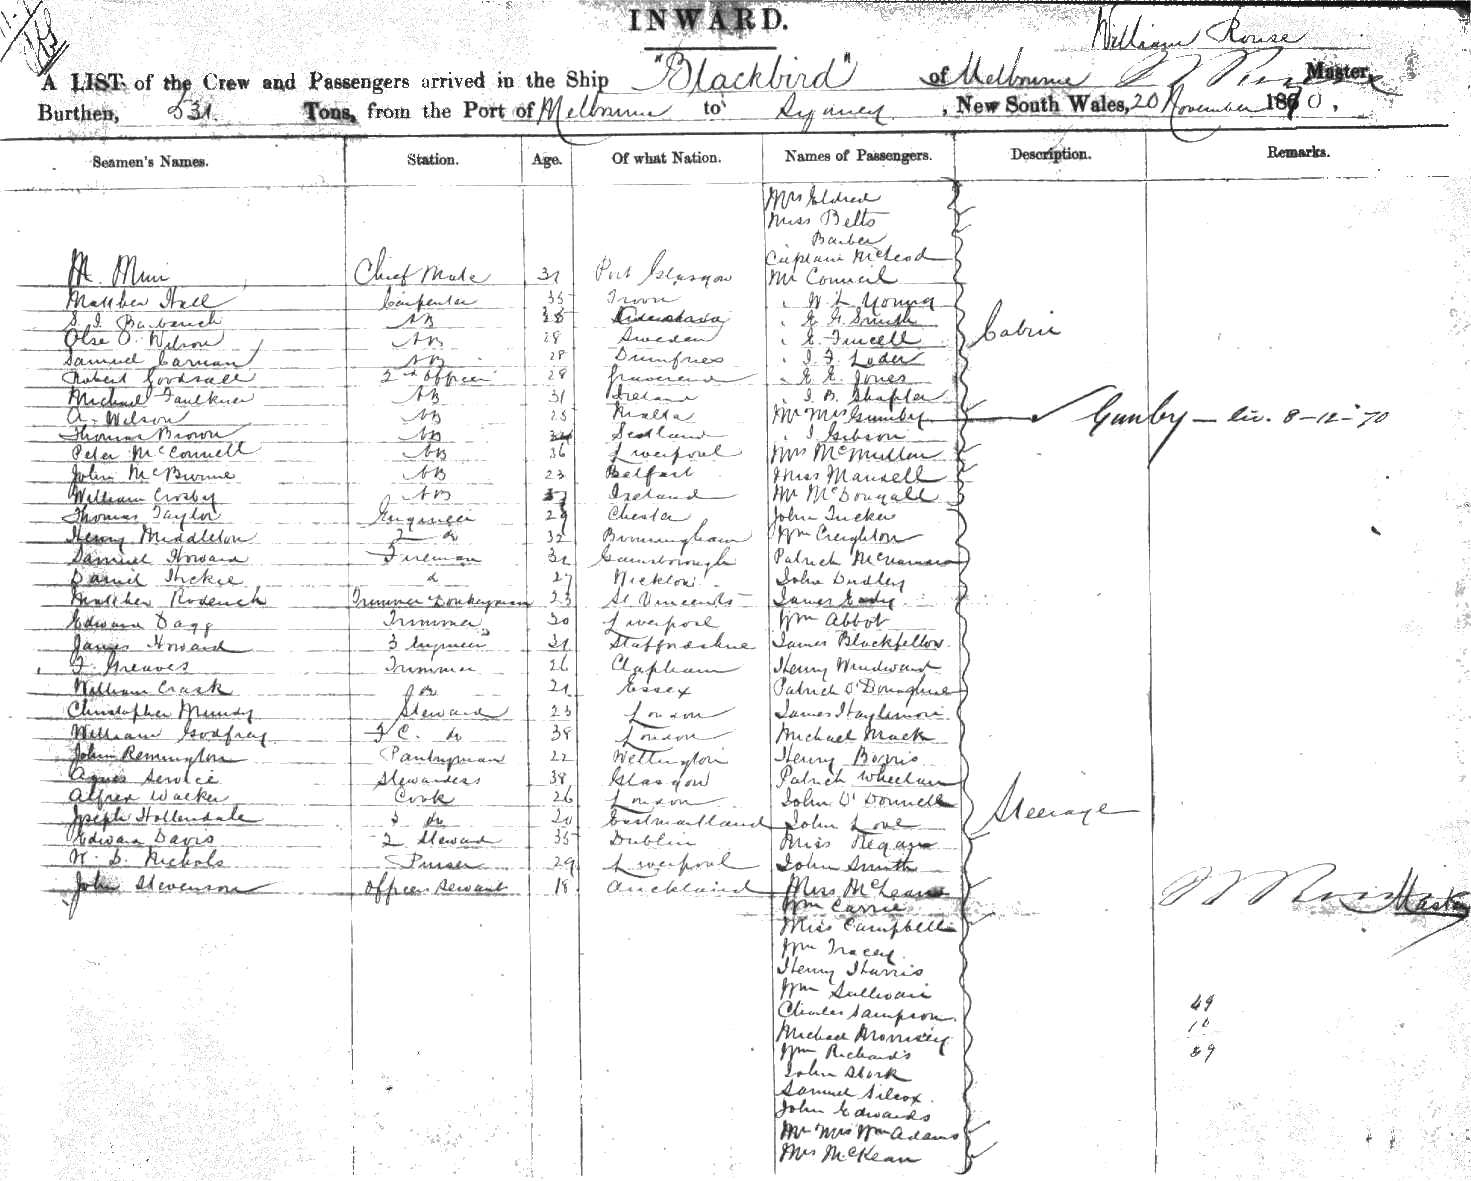 INWARD.
William Rouse
A LIST of the Crew and Passengers arrived in the Ship "Blackbird" of Melbourne Master,
Burthen, 531 Tons, from the Port of Melbourne to Sydney, New South Wales, 20 November 1870,
Seamen's Names. Station. Age. Of what Nation. Names of Passengers. Description. Remarks.
Mrs Eldred
Miss Betts
Barber
Captain McLeod
M. Muir Chief Mate 31 Port Glasgow Mr Council
Matthew Hall Carpenter 35 Troon " W L Young
AB 28 " E G Smith
Olse O. Wilson AB 28 Sweden " E Fincell Cabin
Samuel Carnan AB 28 Dumfries " I F Loder
Robert Goodsall 2nd Officer 28 Gravesend " E E Jones
Michael Faulkner AB 31 Ireland " I B Shapter
A. Wilson AB 25 Malta Mr Mrs Gunby Gunby - liv. 8-12-70
Thomas Brown AB Scotland " I Gibson
Peter McConnell AB 36 Liverpool Mrs McMullen
John McBurnie AB 23 Belfast Miss Mansell
William Crosby AB Ireland Mr McDougall
Thomas Taylor Engineer 29 Chester John Tucker
Henry Middleton 2 do 32 Birmingham Wm Creighton
Samuel Howard Fireman 32 Gainsborough Patrick McNamara
Daniel Hickie do 27 Wicklow John Dudley
Matthew Roderick Trimmer & Donkeyman 23 St Vincents James Eady
Edward Dagg Trimmer 20 Liverpool Wm Abbot
James Howard 3 Engineer 31 Staffordshire James Blackfellow
F. Greaves Trimmer 26 Clapham Henry Windward
William Crask do 21 Essex Patrick O'Donaghue
Christopher Mundy Steward 23 London James Haylimore
William Godfrey F C. do 38 London Michael Mack
John Remington Pantryman 22 Wellington Henry Borris
Agnes Service Stewardess 38 Glasgow Patrick Wheelan
Alfred Walker Cook 26 London John O'Donnell Steerage
Joseph Hollendale 2 do 20 Eastmaitland John Love
Edward Davis 2 Steward 35 Dublin Miss Regan
W. D. Nichols Purser 29 Liverpool John Smith
John Stevenson Officers Servant 18 Auckland Miss McLean Master
Wm Carrie
Miss Campbell
Wm Tracey
Henry Harris
Wm Sullivan
Charles Sampson 49
Michael Morrisey 10
Wm Richards 59
John Stork
Samuel Silcox
John Edwards
Mr Mrs Wm Adams
Mrs McKean